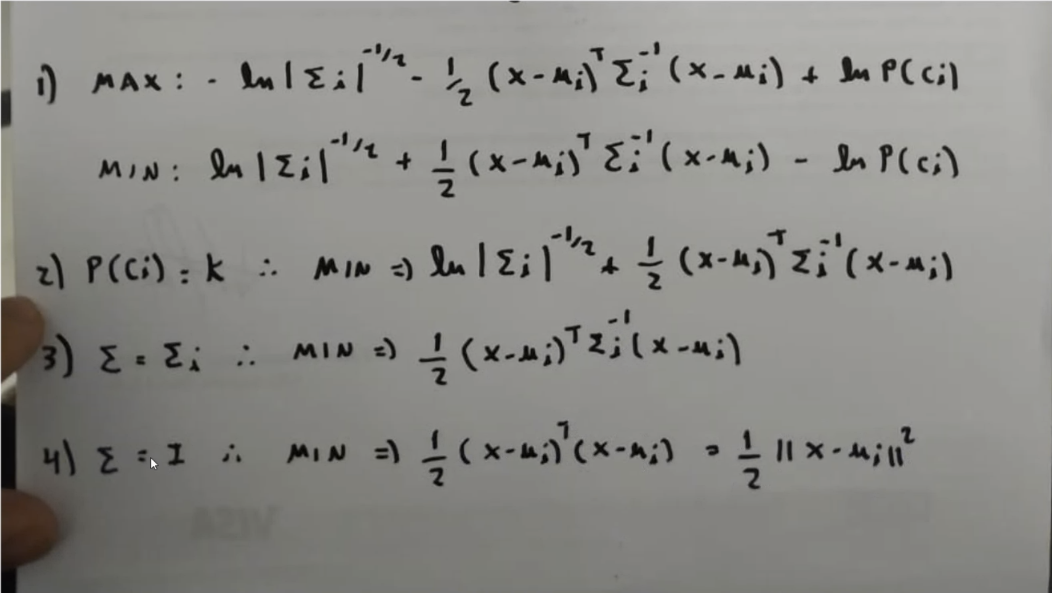 1) MAX: - ln|Σi|^-1/2 - 1/2 (x-μi)^T Σi^-1 (x-μi) + ln P(Ci)
MIN: ln|Σi|^-1/2 + 1/2 (x-μi)^T Σi^-1 (x-μi) - ln P(Ci)
2) P(Ci) = k ∴ MIN => ln|Σi|^-1/2 + 1/2 (x-μi)^T Σi^-1 (x-μi)
3) Σ = Σi ∴ MIN => 1/2 (x-μi)^T Σi^-1 (x-μi)
4) Σ = I ∴ MIN => 1/2 (x-μi)^T (x-μi) = 1/2 ||x-μi||^2
VISA